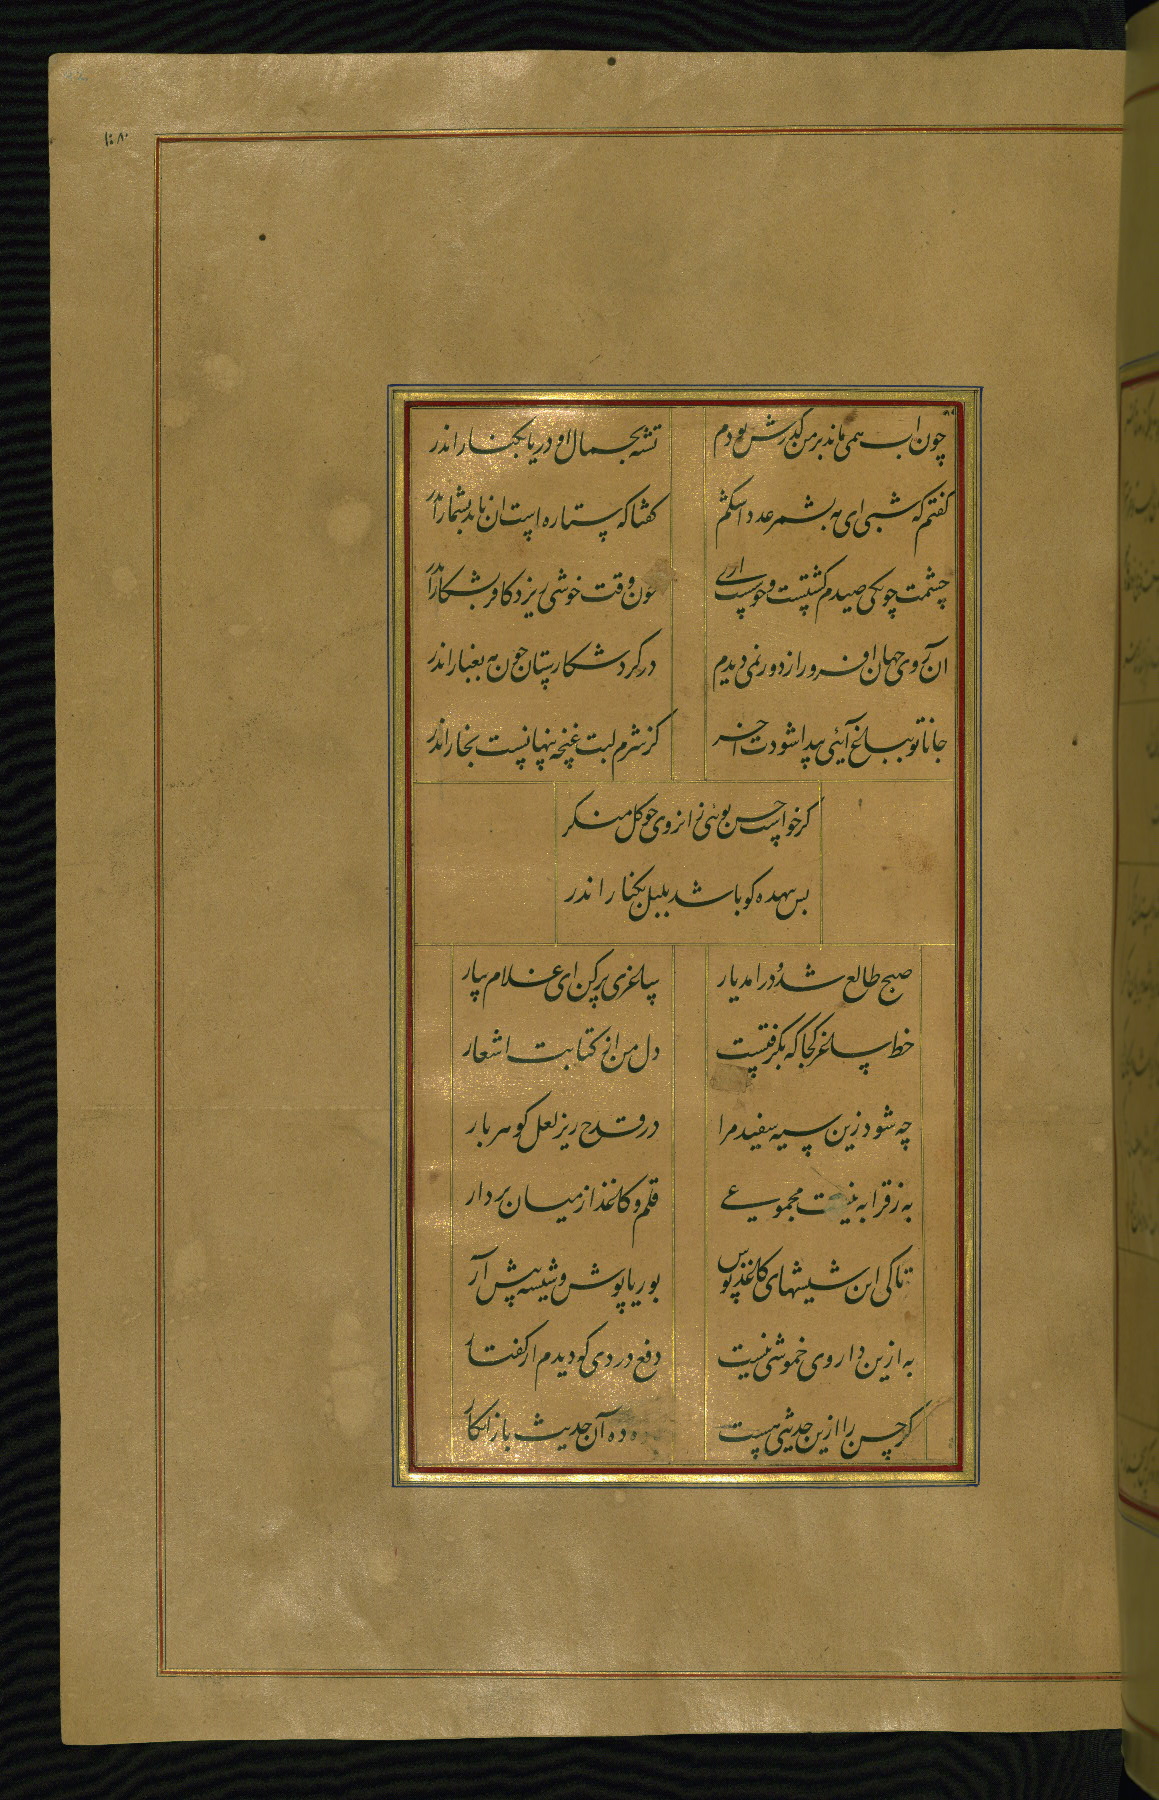 چون اب همی ماند بر من گذرش بودم
تشنه بجمال او دریا بکنار اندر
گفتم که شبی ای مه بشمر عدد اشکم
گفتا که ستاره است ان ناید بشمار اندر
چشمت چو یکی صیدم کشتست و خوشست اری
خون وقت خوشی ریزد کافر بشکار اندر
ان روی جهان افروز از دور نمی دیدم
در کرد شکارستان چون مه بغبار اندر
جانا تو بباغ آئی پیدا شودت اخر
کز شرم لبت غنچه پنهانست بخار اندر
کر خواست حسن بوئی زان روی چو کل منکر
بس بیهده کو باشد بلبل بکنار اندر
صبح طالع شد و درامد یار
ساغری پر کن ای غلام بیار
خط ساغر کجا که بکرفتست
دل من از کتابت اشعار
چه شود زین سیه سفید مرا
در قدح ریز لعل کوهر بار
به ز قرابه نیست مجموعی
قلم و کاغذ از میان بردار
تا کی این شیشهای کاغذ پوس
بوریا پوش و شیشه پیش آر
به ازین داروی خموشی نیست
دفع دردی که دیدم از کفتار
کر حسن را ازین حدیثی هست
ده آن حدیث باز انکار